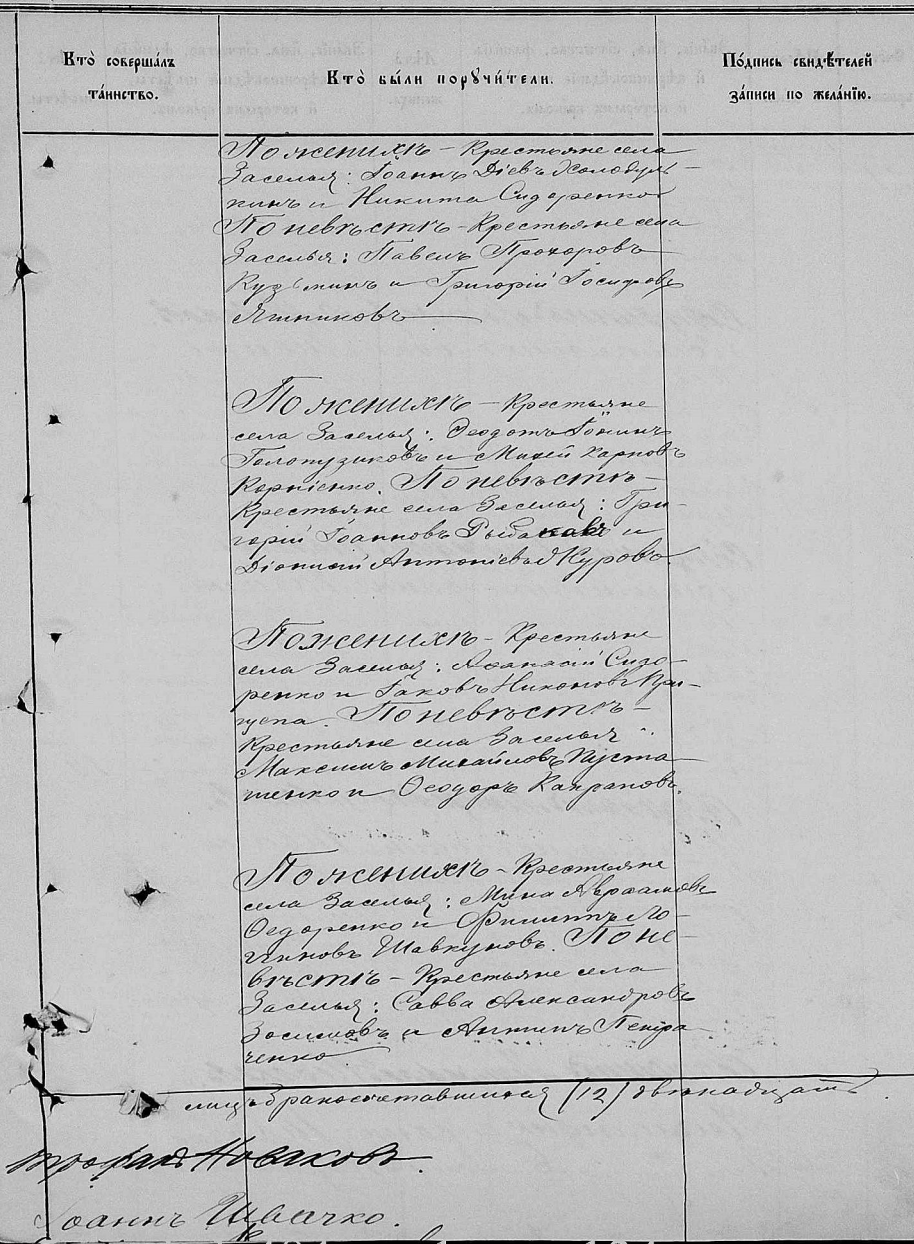 Кто̀ соверша́лъ
та́инство.
Кто̀ бы́ли порꙋчи́тели.
По́дпись свидѣ́телей
за́писи по жела́нїю.
По женихѣ – Крестьяне села
Заселья: Іоаннъ Діевъ Холодул-
кинъ и Никита Сидоренко
По невѣстѣ – Крестьяне села
Заселья: Павелъ Прохоровъ
Кузьминъ и Григорій Іосифовъ
Яшниковъ
По женихѣ – Крестьяне
села Заселья: Ѳеодотъ Іонинъ
Голопузиковъ и Михей Карповъ
Корніенко. По невѣстѣ –
Крестьяне села Заселья: Гри-
горій Іоанновъ Рыбаковъ и
Діонисій Антоніевъ Журовъ.
По женихѣ – Крестьяне
села Заселья: Аѳанасій Сидо-
ренко и Іаковъ Никоновъ
По невѣстѣ –
Крестьяне села Заселья
Максимъ Михайловъ Пуста-
шенко и Ѳеодоръ Капрановъ.
По женихѣ – Крестьяне
села Заселья: Мина Авраамовъ
Ѳедоренко и Филиппъ Ло-
гиновъ Шавкуновъ. По не-
вѣстѣ – Крестьяне села
Заселья: Савва Александровъ
Зосимовъ и Антипъ Петра-
ченко
лицъ бракосочетавшихся (12) двѣнадцать.
трофанъ Новаковъ.
Іоаннъ Швачко.